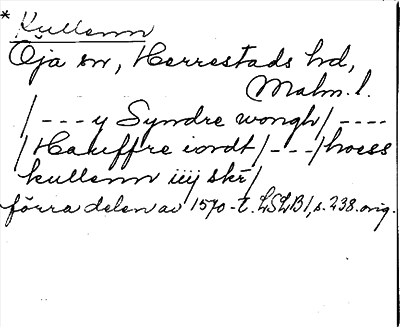 * Kullenn
Öja sn, Herrestads hd,
Malm. l.
/ - - - y Syndre wongh / - - - -
/ Hauffre iordt / - - - / hoess
kullenn iiij skr /
förra delen av 1570-t. LSLB 1, s. 238. orig.